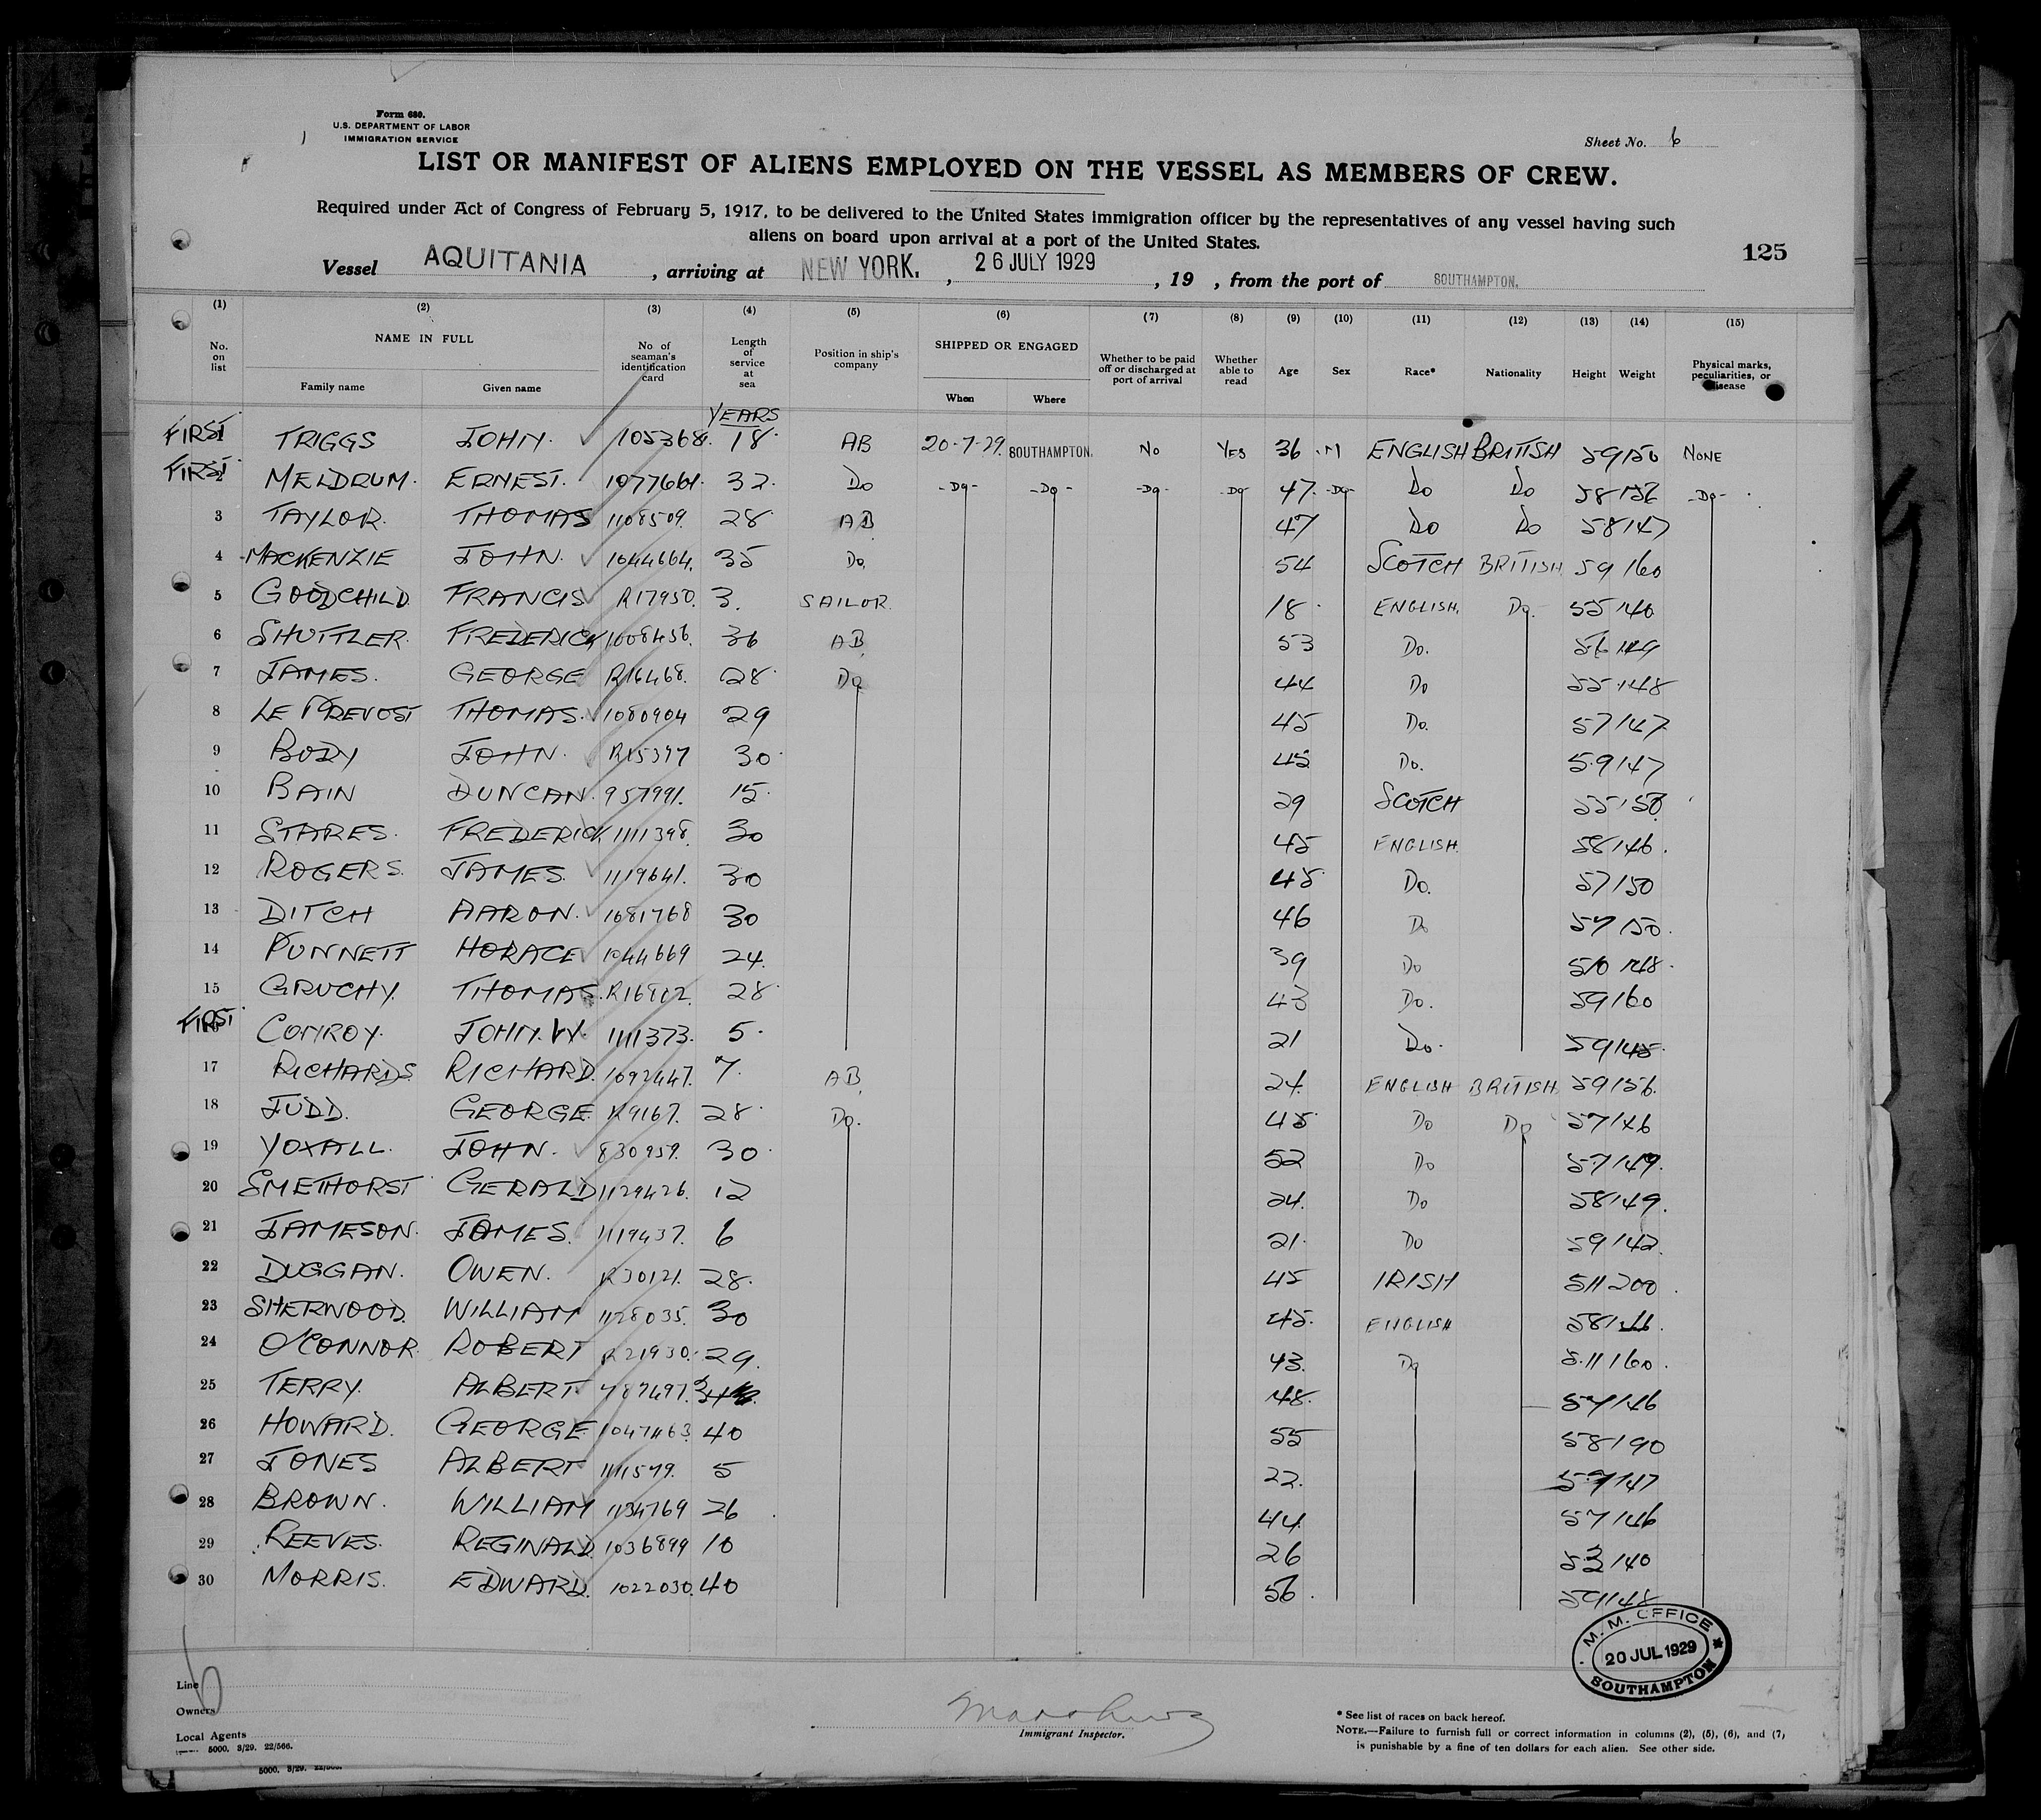 Form 680.
U.S. DEPARTMENT OF LABOR
IMMIGRATION SERVICE
Sheet No. 6
LIST OR MANIFEST OF ALIENS EMPLOYED ON THE VESSEL AS MEMBERS OF CREW.
Required under Act of Congress of February 5, 1917, to be delivered to the United States immigration officer by the representatives of any vessel having such
aliens on board upon arrival at a port of the United States.
125
Vessel AQUITANIA, arriving at NEW YORK., 26 JULY 1929, 19 , from the port of SOUTHAMPTON.
(1) (2) (3) (4) (5) (6) (7) (8) (9) (10) (11) (12) (13) (14) (15)
No. on list NAME IN FULL Family name Given name No. of seaman's identification card Length of service at sea Position in ship's company SHIPPED OR ENGAGED When Where Whether to be paid off or discharged at port of arrival Whether able to read Age Sex Race* Nationality Height Weight Physical marks, peculiarities, or disease
YEARS
FIRST TRIGGS JOHN. 105368. 18. AB 20-7-29. SOUTHAMPTON. NO YES 36 M ENGLISH BRITISH 59 150 NONE
FIRST 2 MELDRUM. ERNEST. 1077661. 32. Do -Do- -Do- -Do- -Do- 47. -Do- Do Do 58 156 -Do-
3 TAYLOR. THOMAS 1108509. 28 AB 47 Do Do 58 147
4 MACKENZIE JOHN. 1044664. 35 Do. 54 SCOTCH BRITISH 59 160
5 GOODCHILD. FRANCIS R17950. 3. SAILOR. 18 ENGLISH. Do. 55 140
6 SHUTTLER. FREDERICK 1008456. 36 AB 53 Do. 56 149
7 JAMES. GEORGE R16468. 28 Do 44 Do 55 148
8 LE PREVOST THOMAS. 1080904 29 45 Do. 57 147
9 BODY JOHN. R15397 30 45 Do. 59 147
10 BAIN DUNCAN. 957991. 15. 29 SCOTCH 55 150
11 STARES. FREDERICK 1111398. 30 45 ENGLISH. 58 146.
12 ROGERS. JAMES. 1119641. 30 45 Do. 57 150
13 DITCH AARON. 1081768 30 46 Do 57 150.
14 PUNNETT HORACE 1044669 24. 39 Do 510 148.
15 GRUCHY. THOMAS. R16812. 28 43 Do. 59 160
FIRST CONROY. JOHN. W. 1111373. 5. 21 Do. 59 145.
17 RICHARDS RICHARD. 1092447. 7. AB 24. ENGLISH BRITISH. 59 156.
18 JUDD. GEORGE. R9167. 28. Do. 45 Do Do 57 146
19 YOXALL. JOHN. 830959. 30. 52 Do 57 149.
20 SMETHORST GERALD 1129426. 12 24. Do 58 149.
21 JAMESON. JAMES. 1119437. 6 21. Do 59 142.
22 DUGGAN. OWEN. R30121. 28. 45 IRISH 511 200.
23 SHERWOOD. WILLIAM 1128035. 30 45. ENGLISH 58 146.
24 O'CONNOR. ROBERT R21930. 29. 43. Do 5.11 160.
25 TERRY. ALBERT 787497. 48. 57 146
26 HOWARD. GEORGE 1047463. 40 55 58 190
27 JONES ALBERT 1111579. 5 22. 57 147
28 BROWN. WILLIAM 1134769 26 44. 57 146
29 REEVES. REGINALD. 1036899 10 26 140
30 MORRIS. EDWARD. 1022030. 40 56. 59 148
M. M. OFFICE
20 JUL 1929
SOUTHAMPTON
6
Line
Owners
Local Agents
5000. 3/29. 22/566.
Immigrant Inspector.
* See list of races on back hereof.
NOTE.—Failure to furnish full or correct information in columns (2), (5), (6), and (7),
is punishable by a fine of ten dollars for each alien. See other side.
5000. 3/29. 22/566.